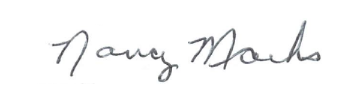 Nancy Marks